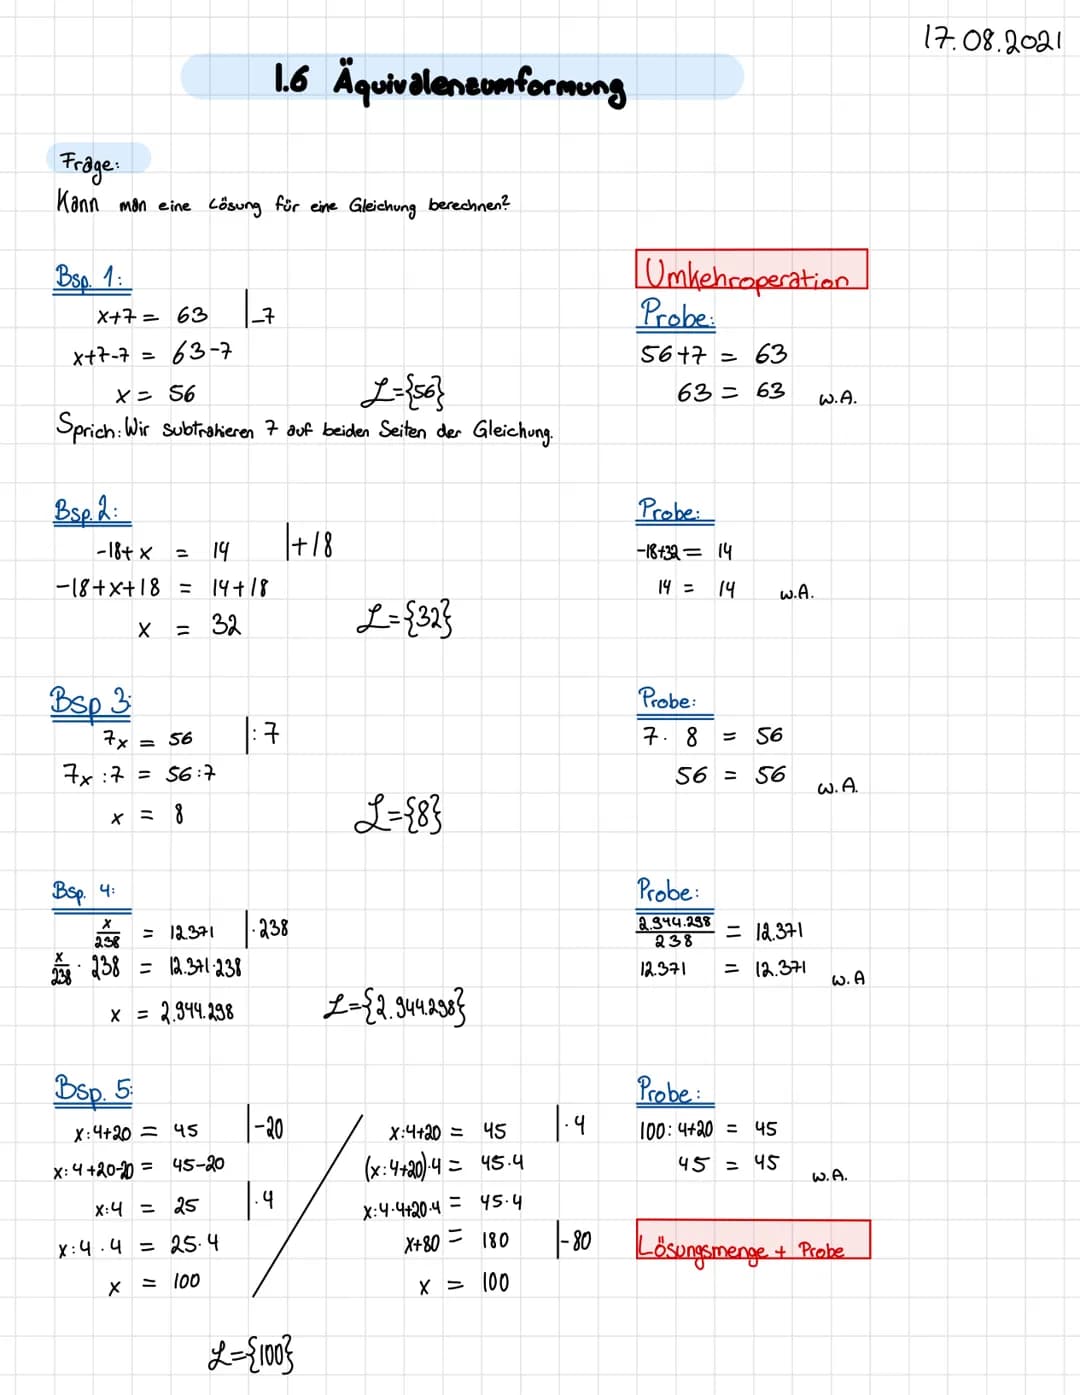 17.08.2021
1.6 Äquivalenzumformung
Frage:
Kann man eine Lösung für eine Gleichung berechnen?
Bsp. 1:
x+7 = 63 |-7
x+7-7 = 63-7
x = 56
L={56}
Sprich: Wir subtrahieren 7 auf beiden Seiten der Gleichung.
Umkehroperation
Probe:
56+7 = 63
63 = 63 w.A.
Bsp. 2:
-18+x = 14 |+18
-18+x+18 = 14+18
x = 32
L={32}
Probe:
-18+32 = 14
14 = 14 w.A.
Bsp 3:
7x = 56 |:7
7x :7 = 56:7
x = 8
L={8}
Probe:
7. 8 = 56
56 = 56 w.A.
Bsp. 4:
x/238 = 12.371 |·238
x/238 · 238 = 12.371·238
x = 2.944.298
L={2.944.298}
Probe:
2.944.298/238 = 12.371
12.371 = 12.371 w.A
Bsp. 5:
x:4+20 = 45 |-20
x:4+20-20 = 45-20
x:4 = 25 |·4
x:4 · 4 = 25·4
x = 100
x:4+20 = 45 |·4
(x:4+20)·4 = 45·4
x:4·4+20·4 = 45·4
x+80 = 180 |-80
x = 100
L={100}
Probe:
100:4+20 = 45
45 = 45 w.A.
Lösungsmenge + Probe